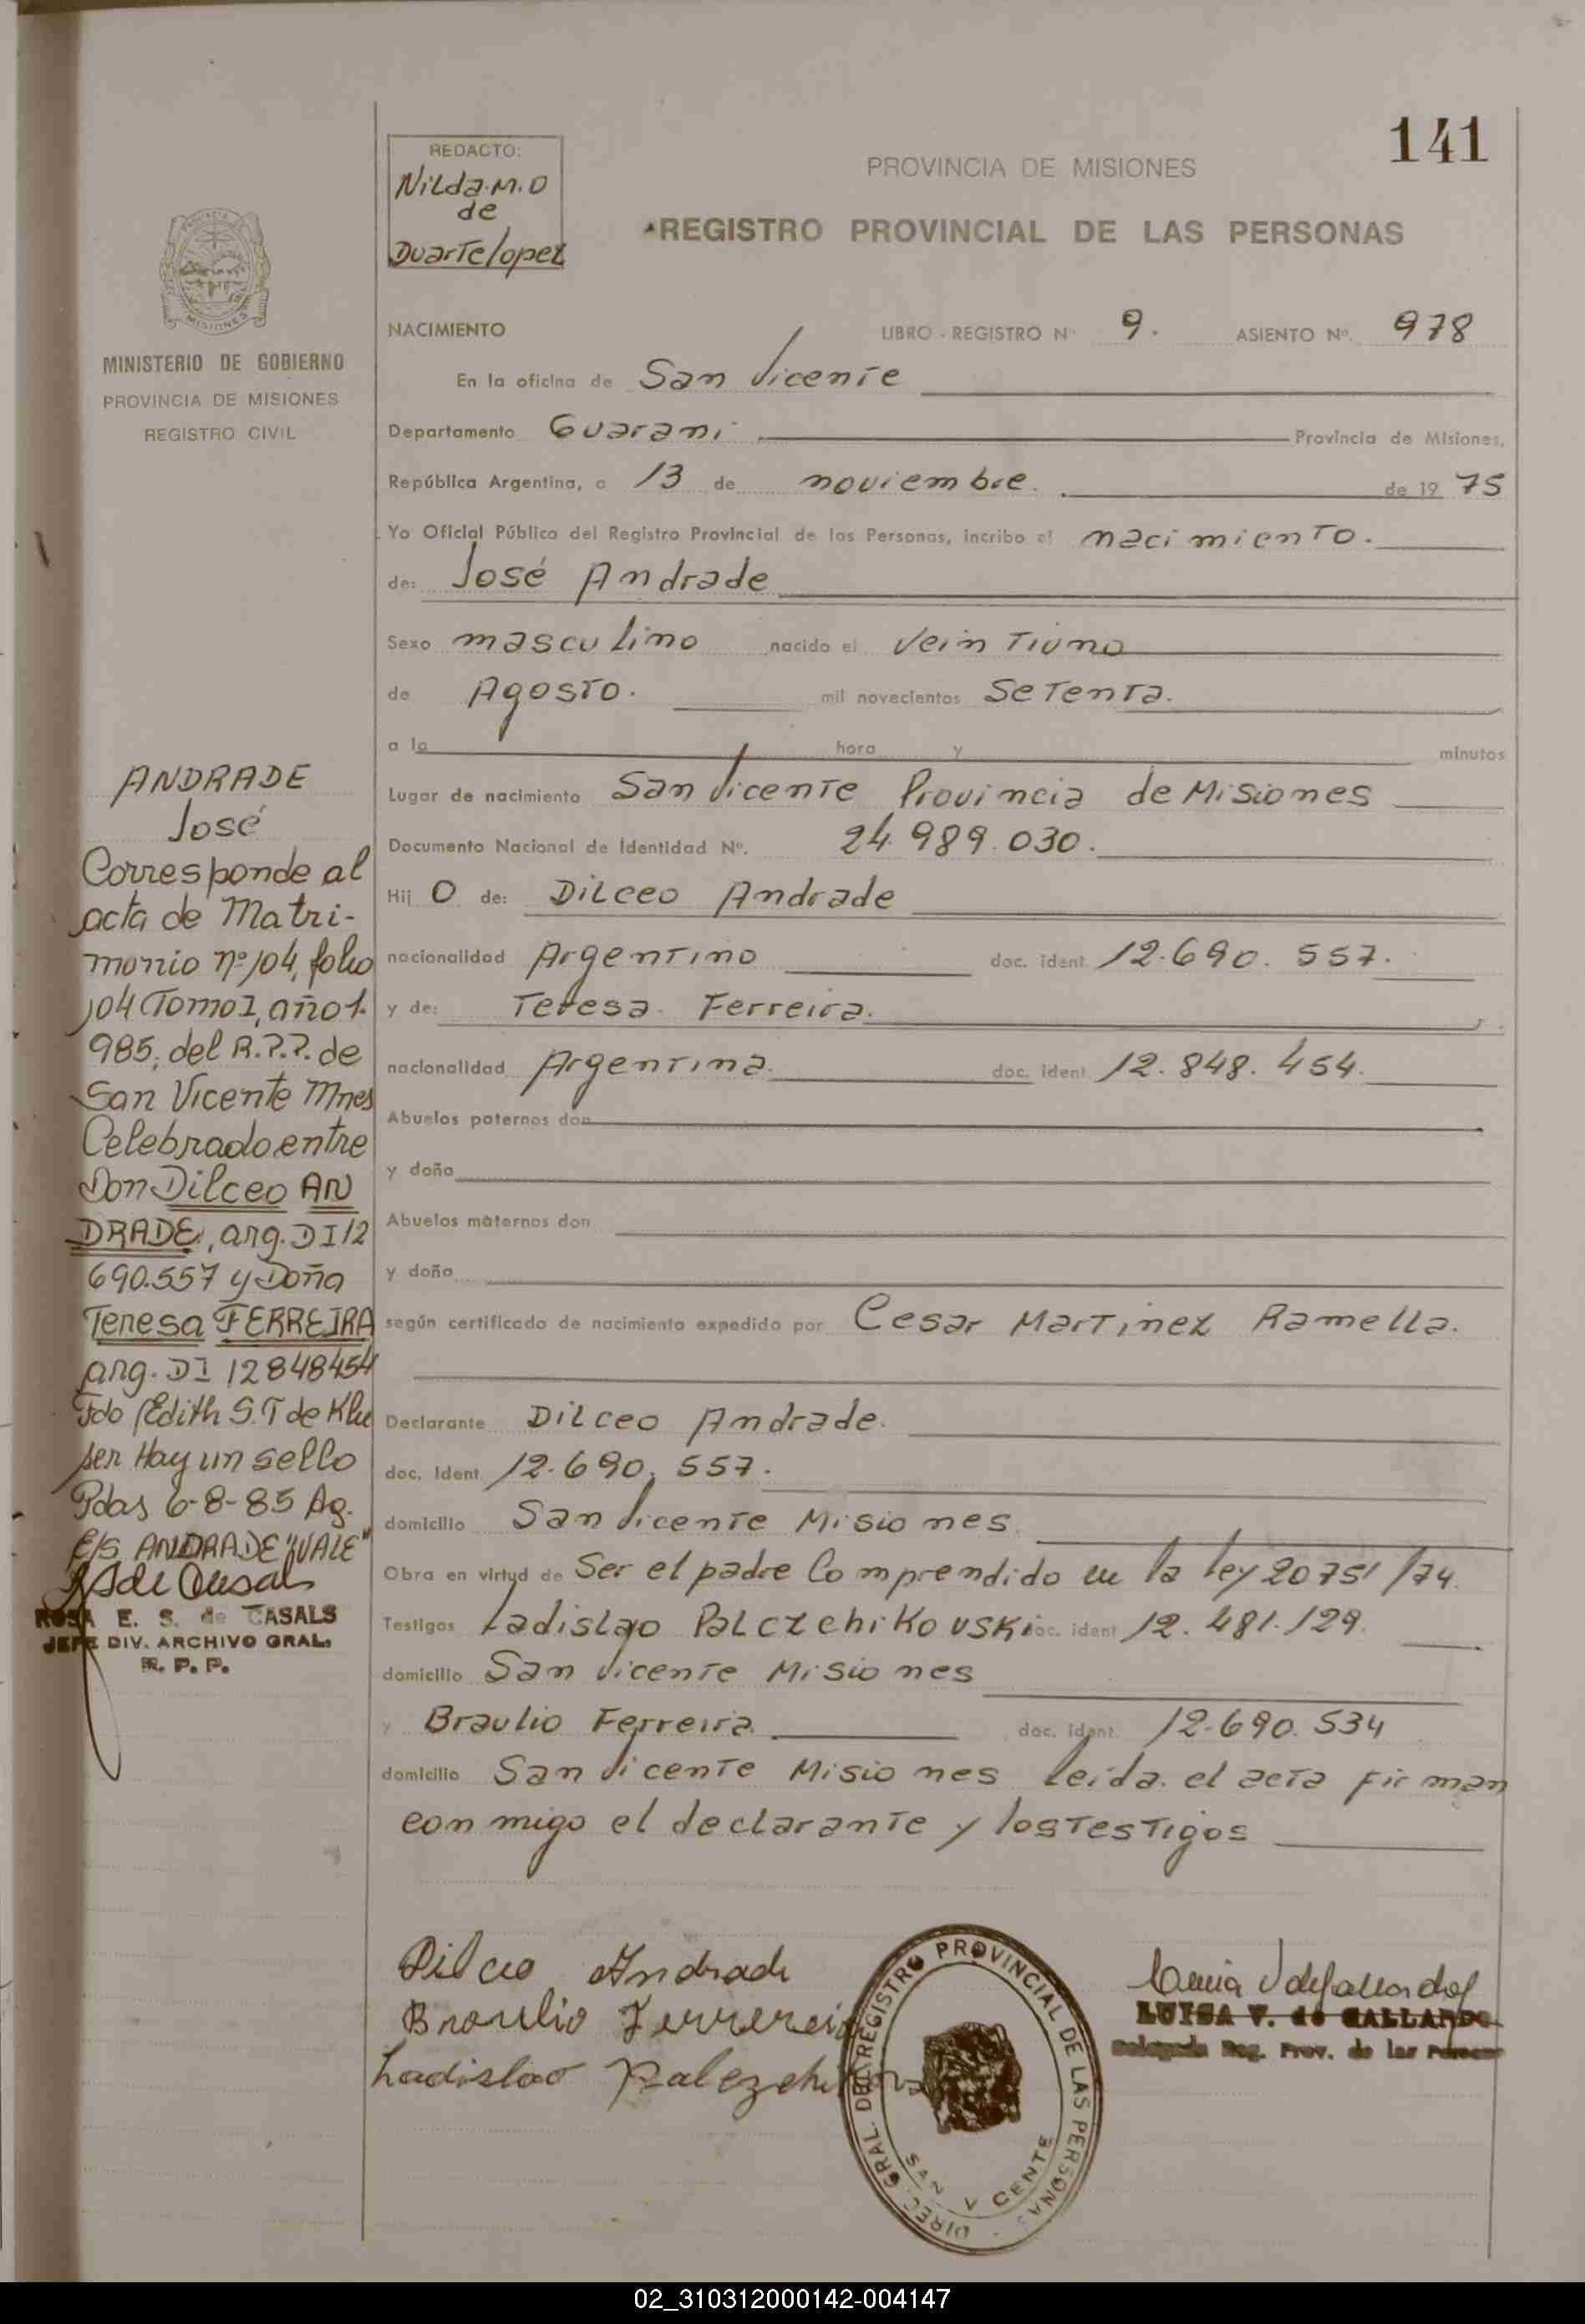 141
REDACTO:
Nilda.M.O
de
Duarte lopez
PROVINCIA DE MISIONES
REGISTRO PROVINCIAL DE LAS PERSONAS
MISIONES
MINISTERIO DE GOBIERNO
PROVINCIA DE MISIONES
REGISTRO CIVIL
NACIMIENTO LIBRO - REGISTRO Nº 9. ASIENTO Nº. 978
En la oficina de San Vicente
Departamento Guarani Provincia de Misiones,
República Argentina, a 13 de noviembre. de 19 75
Yo Oficial Público del Registro Provincial de las Personas, incribo el nacimiento.
de: José Andrade
Sexo masculino nacido el Vein Tiuno
de Agosto. mil novecientos Setenta.
a la hora y minutos
Lugar de nacimiento San Vicente Provincia de Misiones
Documento Nacional de Identidad Nº. 24.989.030.
Hij O de: Dilceo Andrade
nacionalidad Argentino doc. ident. 12.690.557.
y de: Teresa Ferreira.
nacionalidad Argentina. doc. ident. 12.848.454.
Abuelos paternos don
y doña
Abuelos maternos don
y doña
según certificado de nacimiento expedido por Cesar Martinez Ramella.
Declarante Dilceo Andrade.
doc. Ident. 12.690.557.
domicilio San Vicente Misiones
Obra en virtud de Ser el padre Comprendido en la ley 20751/74.
Testigos Ladislao Palczchikouski doc. ident 12.481.129.
domicilio San Vicente Misiones
y Braulio Ferreira doc. ident. 12.690.534
domicilio San Vicente Misiones leida. el acta firman
conmigo el declarante y los Testigos
ANDRADE
José
Corresponde al
acta de Matri-
monio nº 104, folio
104 Tomo I, año 1.
985, del R.P.P. de
San Vicente Mnes
Celebrado entre
Don Dilceo AN
DRADE, arg. DI 12
690.557 y Doña
Teresa FERREIRA
arg. DI 12848454
Fdo Edith S.T de Klu
ser Hay un sello
Pdas 6-8-85 Ag.
E/S ANDRADE "VALE"
ROSA E. S. de CASALS
JEFE DIV. ARCHIVO GRAL.
R. P. P.
Dilceo Andrade
Braulio Ferrereira
Ladislao Palczchi
DIREC. GRAL. DEL REGISTRO PROVINCIAL DE LAS PERSONAS
SAN VICENTE
LUISA V. de GALLARDO
Delegada Reg. Prov. de las Personas
02_310312000142-004147